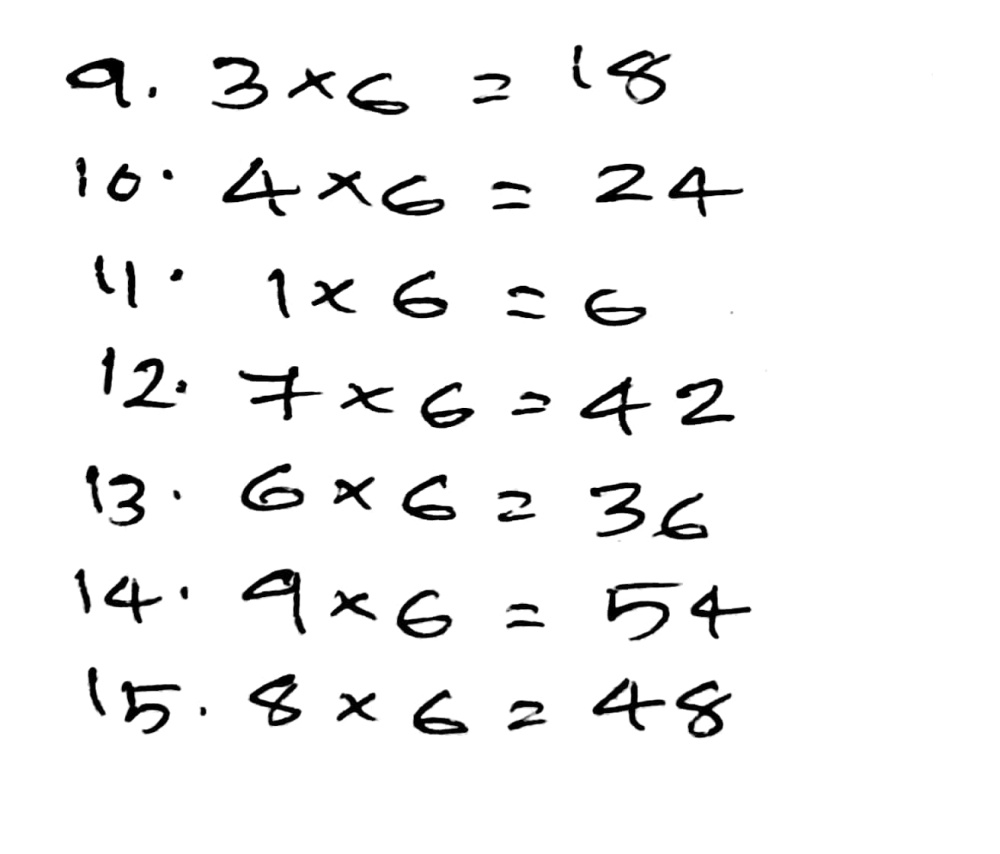 9. 3 × 6 = 18
10. 4 × 6 = 24
11. 1 × 6 = 6
12. 7 × 6 = 42
13. 6 × 6 = 36
14. 9 × 6 = 54
15. 8 × 6 = 48